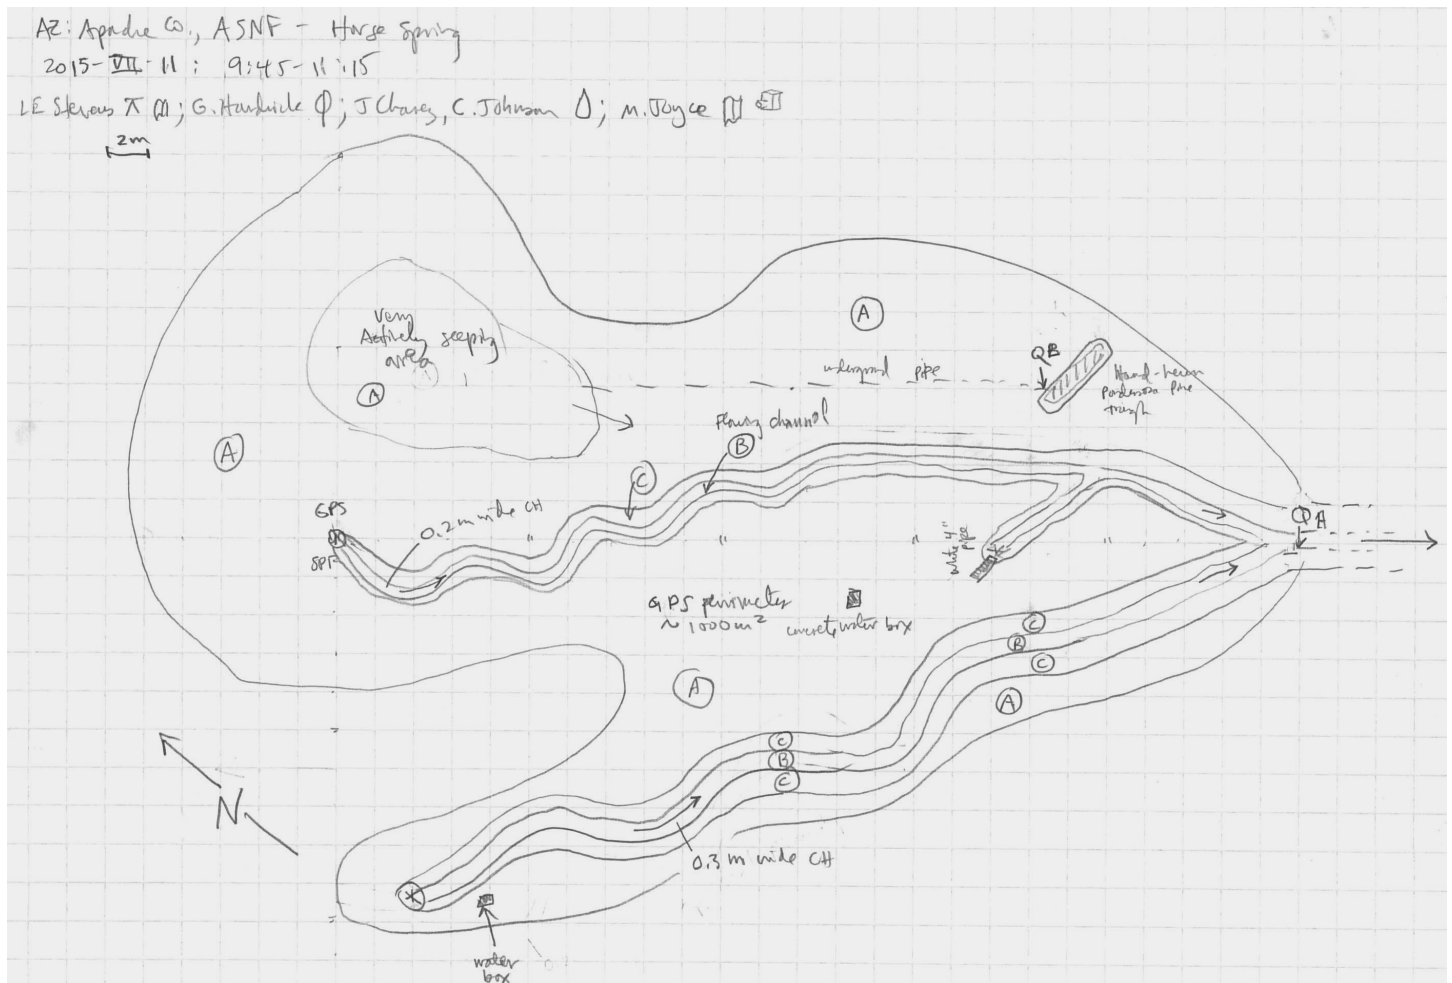 AZ: Apache Co., ASNF - Horse Spring
2015-VII-11 : 9:45-11:15
LE Stevens; G. Hardwick; J Chavez, C. Johnson; M. Joyce
2m
A
Very
Actively seeping
area
A
QB
underground pipe
Hand-hewn
Ponderosa Pine
trough
Flowing channel
B
A
C
GPS
SPF
0.2 m wide CH
QA
white 4"
pipe
GPS perimeter
~ 1000m²
concrete water box
C
B
C
A
A
C
B
C
N
0.3 m wide CH
water
box